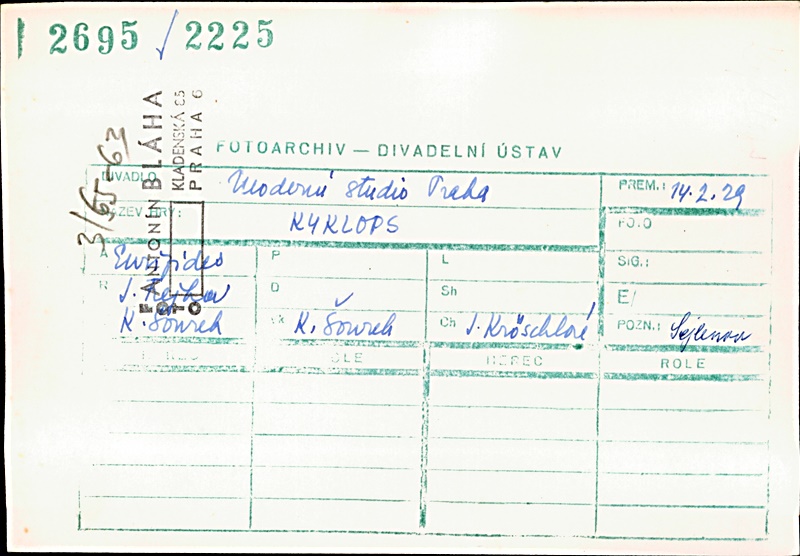 2695/2225
3/65-63
FOTO ANTONÍN BLÁHA
KLADENSKÁ 65
PRAHA 6
FOTOARCHIV — DIVADELNÍ ÚSTAV
DIVADLO Moderní studio Praha PREM.: 14.2.29
NÁZEV HRY: KYKLOPS FO.O
A Euripides P L SIG.:
R J. Rejha D Sh E/
K. Šourek K. Šourek Ch J. Kröschlová POZN.: Sejlenova
HEREC ROLE HEREC ROLE